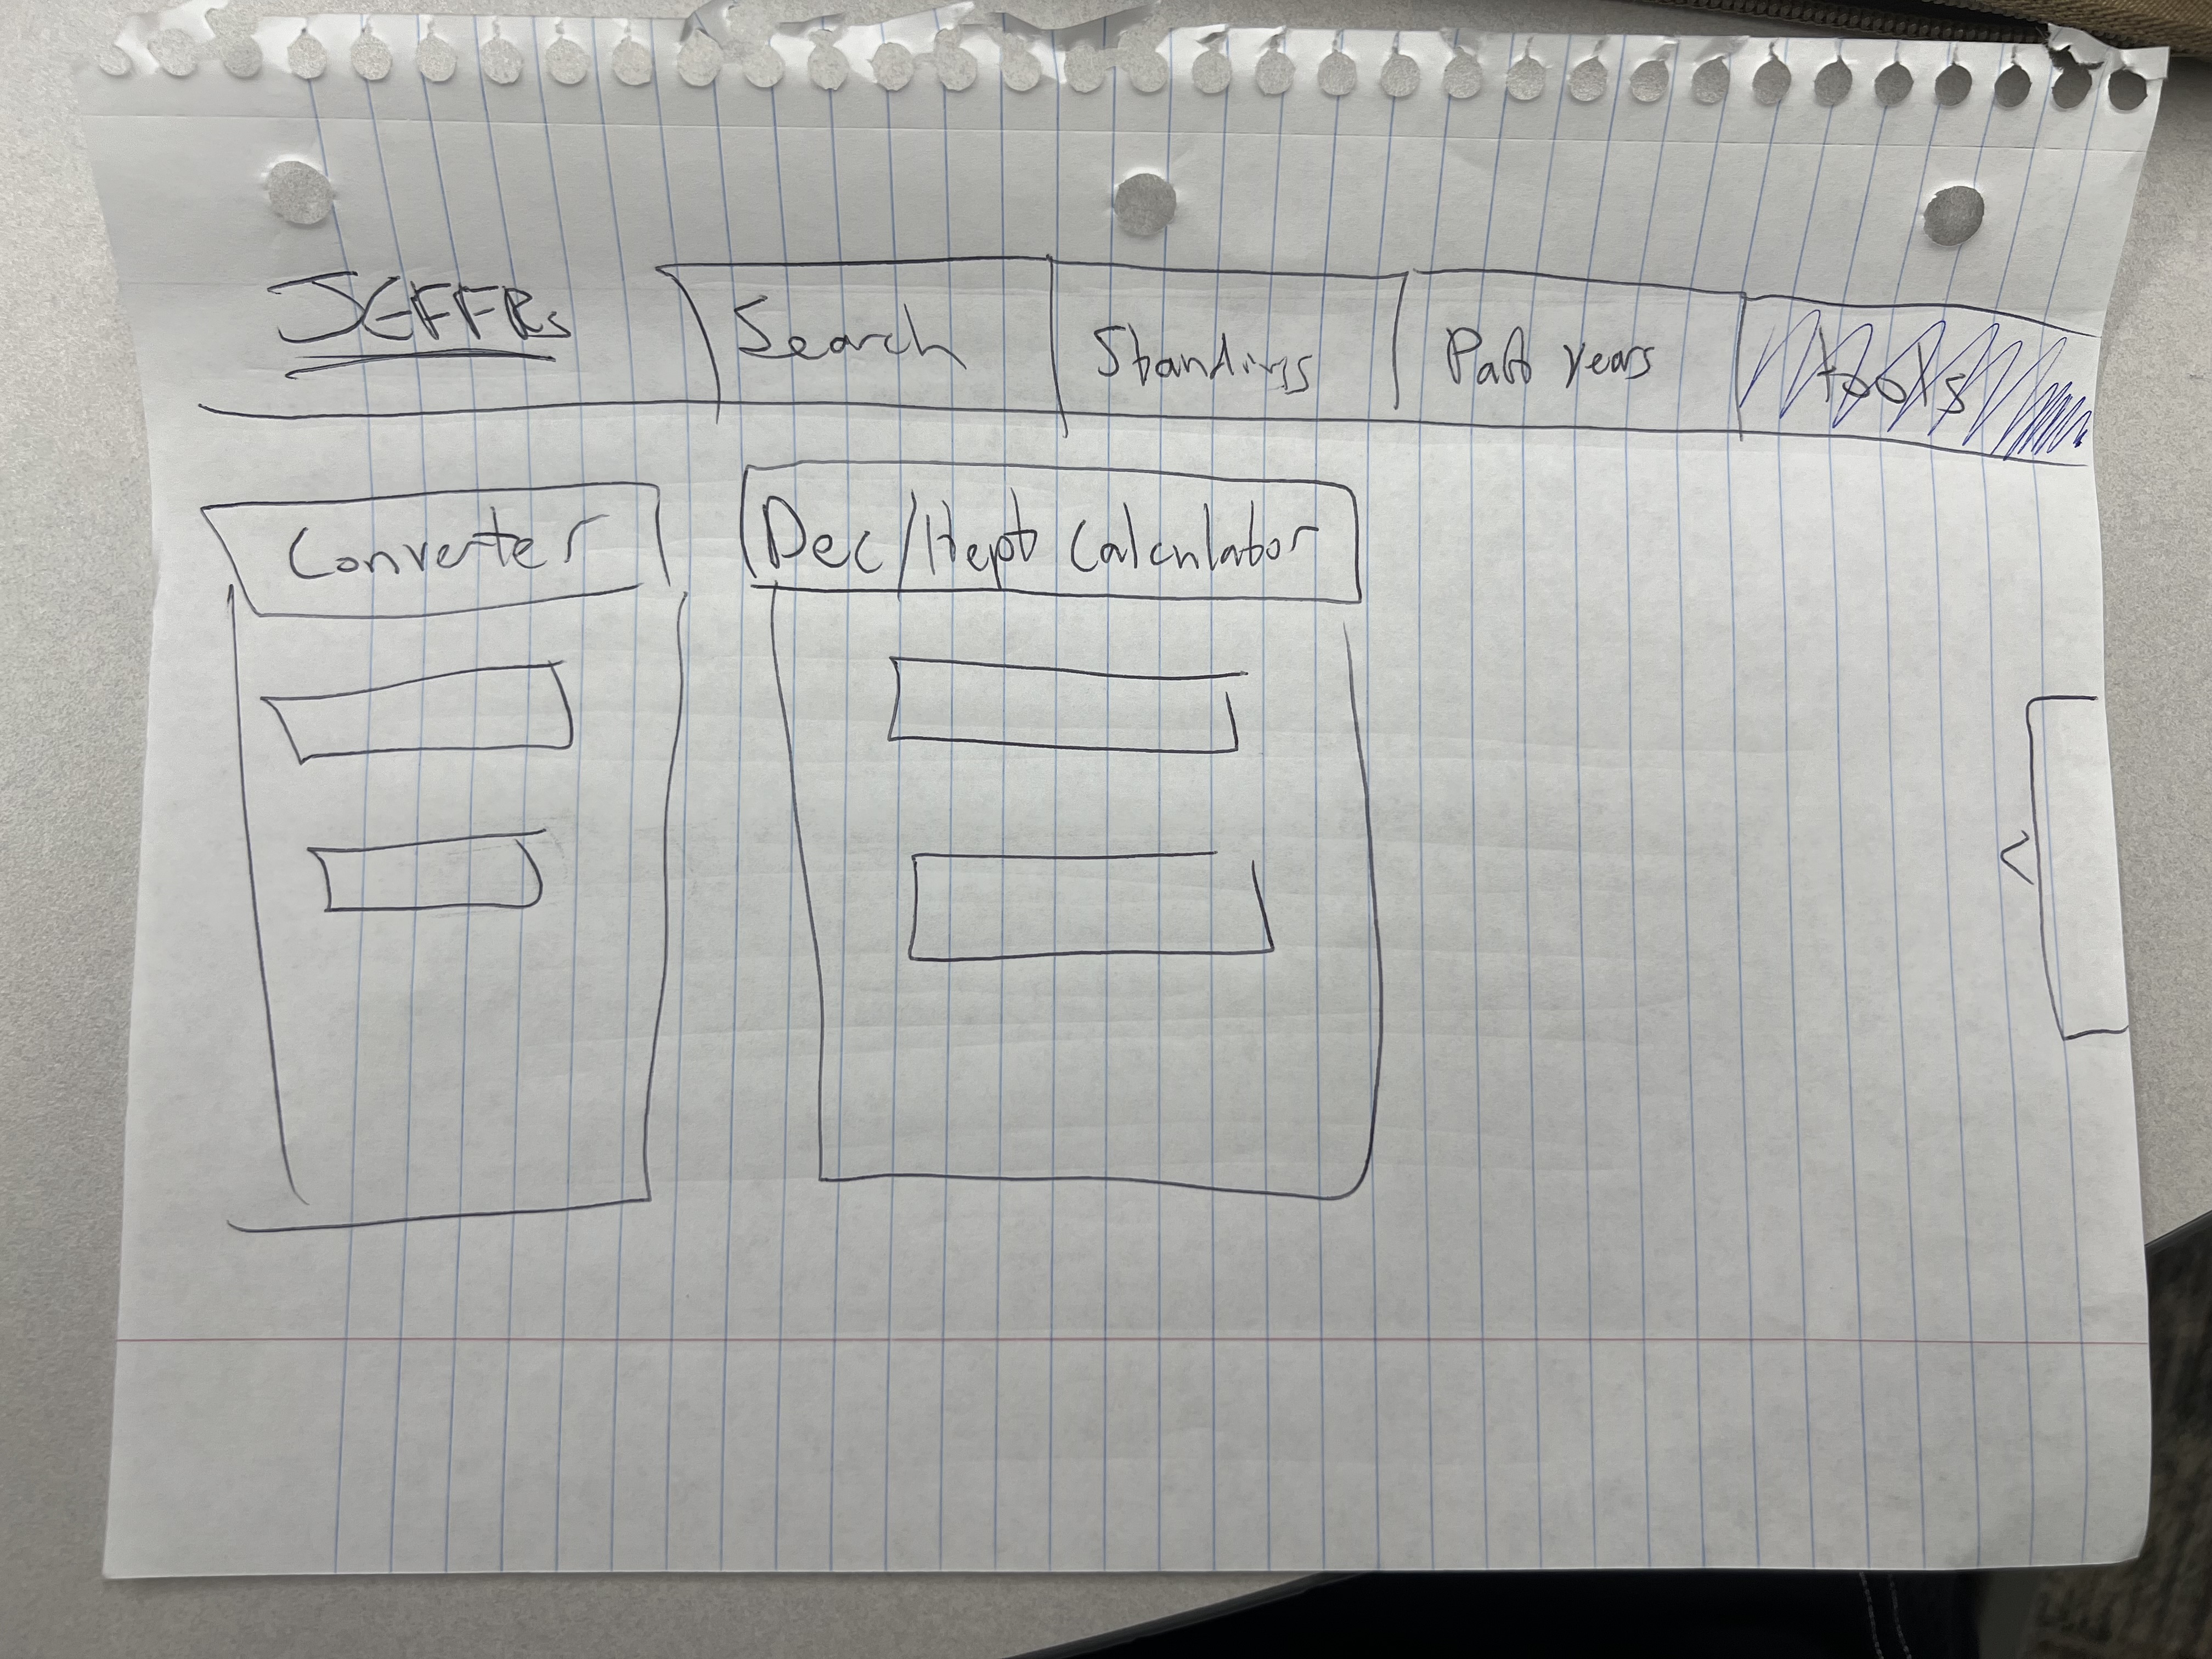 JEFFRs
Search
Standings
Past Years
tools
Converter
Dec/Hept Calculator